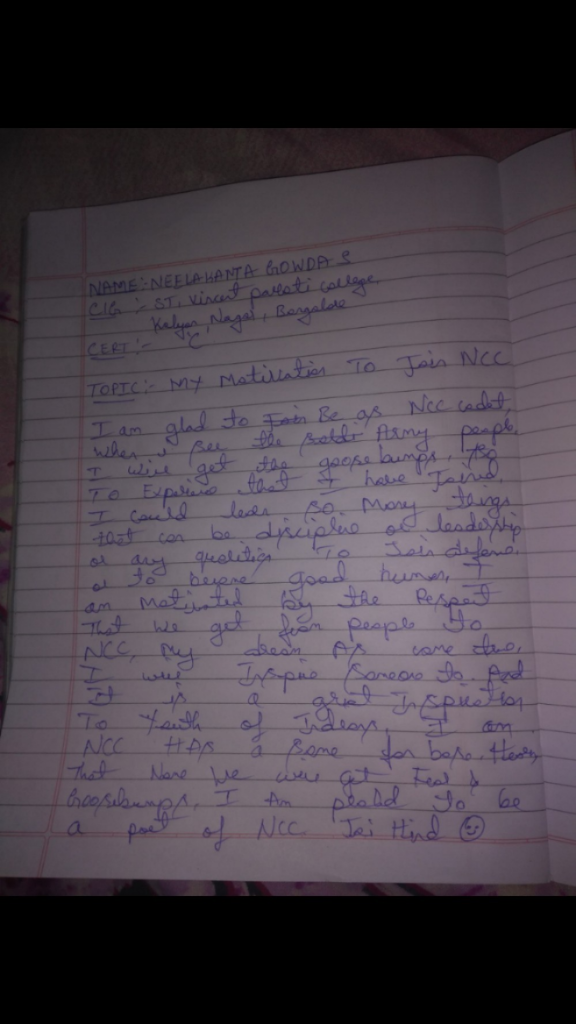 NAME:- NEELAHANTA GOWDA S
CIG :- ST. Vincent palloti college,
Kalyan, Nagar, Bangalore
CERT:- 'C'
TOPIC:- MY Motivation To Join NCC
I am glad to Be as NCC cadet,
when I see the Army people
I will get the goosebumps, So
To Expirins that I have Joined
I could learn so Many things
that can be discipline or leadership
or any qualities To Join defence.
or to become good human, I
am Motivated by the Respect
That we get from people to
NCC, My dream As come true,
I will Inspire Someone to. And
It is a great Inspiration
To Youth of Indians, I am
NCC HAs a Name for
That Name We will get Feel &
Goosebumps, I Am proud to be
a part of NCC Jai Hind ☺